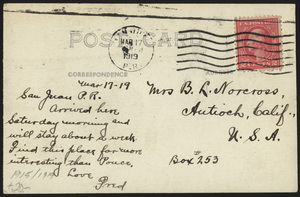 SAN JUAN
MAR 17
1919
P.R.
POSTCARD
CORRESPONDENCE
Mar-17-19
San Juan P.R.
Arrived here
Saturday morning and
will stay about a week.
Find this place far more
interesting than Ponce.
Love
Fred
Mrs B. L. Norcross,
Antioch, Calif.,
U. S. A.
Box # 253